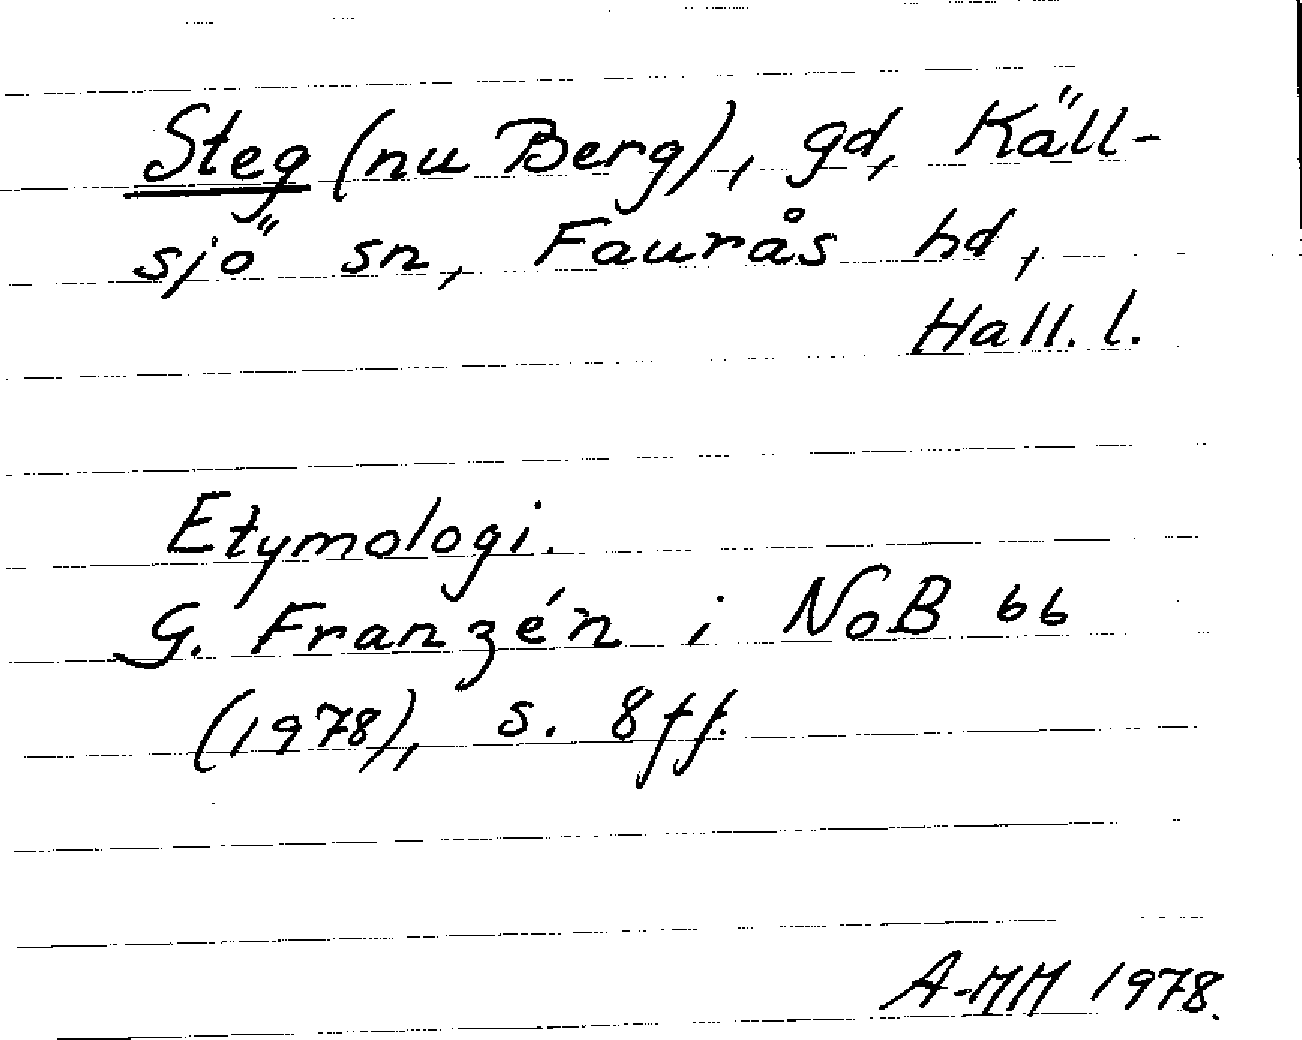 Steg (nu Berg), gd, Käll-
sjö sn, Faurås hd,
Hall. l.
Etymologi.
G. Franzén i NoB 66
(1978), s. 8 ff.
A-MH 1978.